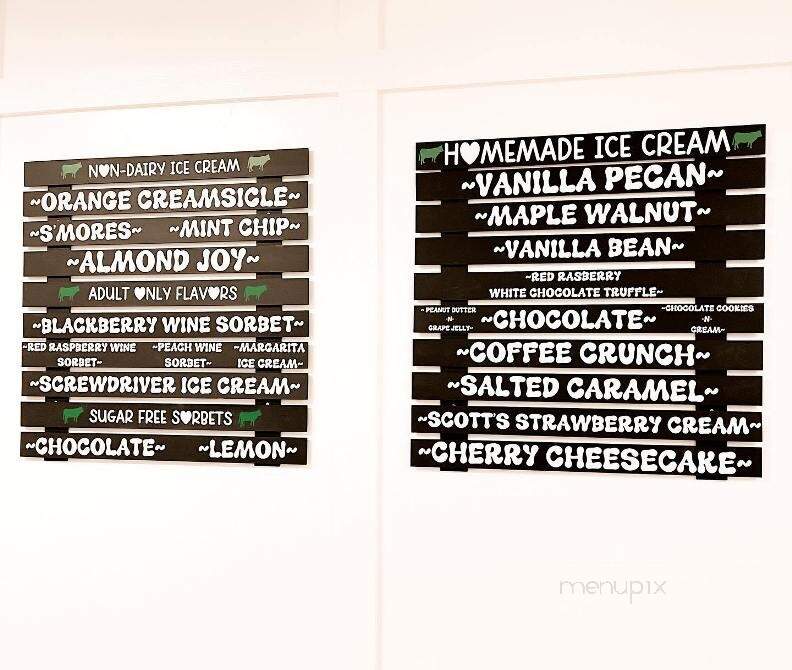 NON-DAIRY ICE CREAM
~ORANGE CREAMSICLE~
~S'MORES~ ~MINT CHIP~
~ALMOND JOY~
ADULT ONLY FLAVORS
~BLACKBERRY WINE SORBET~
~RED RASPBERRY WINE SORBET~ ~PEACH WINE SORBET~ ~MARGARITA ICE CREAM~
~SCREWDRIVER ICE CREAM~
SUGAR FREE SORBETS
~CHOCOLATE~ ~LEMON~
HOMEMADE ICE CREAM
~VANILLA PECAN~
~MAPLE WALNUT~
~VANILLA BEAN~
~RED RASBERRY
WHITE CHOCOLATE TRUFFLE~
~PEANUT BUTTER -N- GRAPE JELLY~ ~CHOCOLATE~ ~CHOCOLATE COOKIES -N- CREAM~
~COFFEE CRUNCH~
~SALTED CARAMEL~
~SCOTT'S STRAWBERRY CREAM~
~CHERRY CHEESECAKE~
menupix